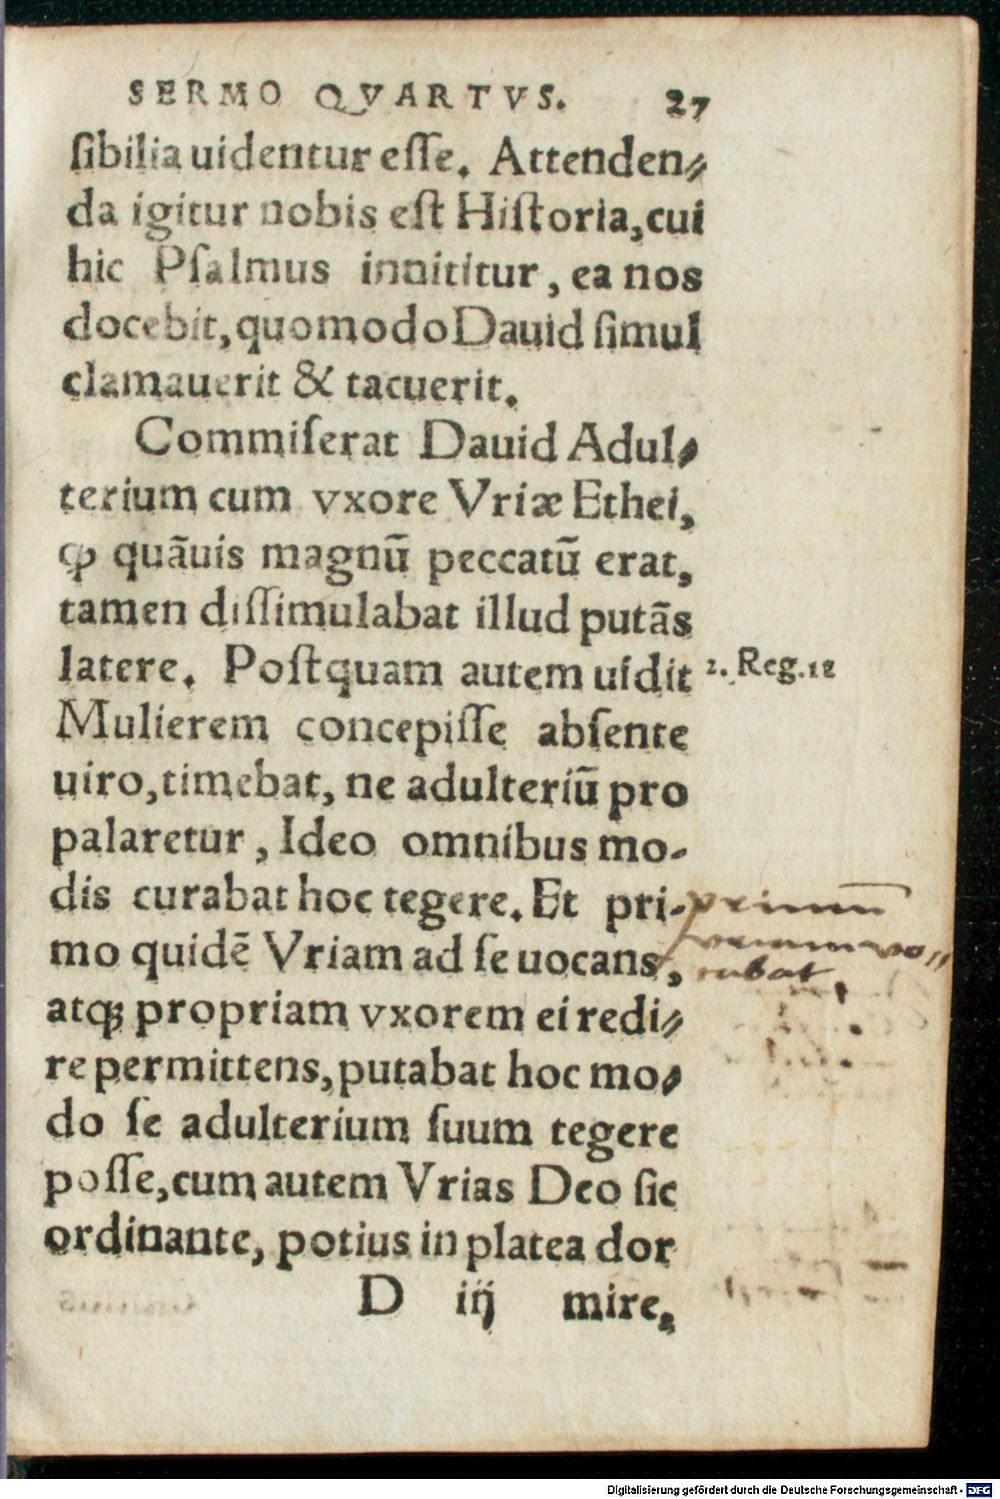 SERMO QVARTVS. 27
ſibilia uidentur eſſe. Attenden⸗
da igitur nobis eſt Hiſtoria, cui
hic Pſalmus innititur, ea nos
docebit, quomodo Dauid ſimul
clamauerit & tacuerit.
Commiſerat Dauid Adul⸗
terium cum vxore Vriæ Ethei,
ꝙ quãuis magnũ peccatũ erat,
tamen diſſimulabat illud putãs
latere. Poſtquam autem uidit
2. Reg. 12
Mulierem concepiſſe abſente
uiro, timebat, ne adulteriũ pro
palaretur, Ideo omnibus mo-
dis curabat hoc tegere. Et pri-
mo quidẽ Vriam ad ſe uocans,
atqꝫ propriam vxorem ei redi⸗
re permittens, putabat hoc mo⸗
do ſe adulterium ſuum tegere
poſſe, cum autem Vrias Deo ſic
ordinante, potius in platea dor
D iij mire,
primũ
vriam vo⸗
cabat.
Digitalisierung gefördert durch die Deutsche Forschungsgemeinschaft - DFG